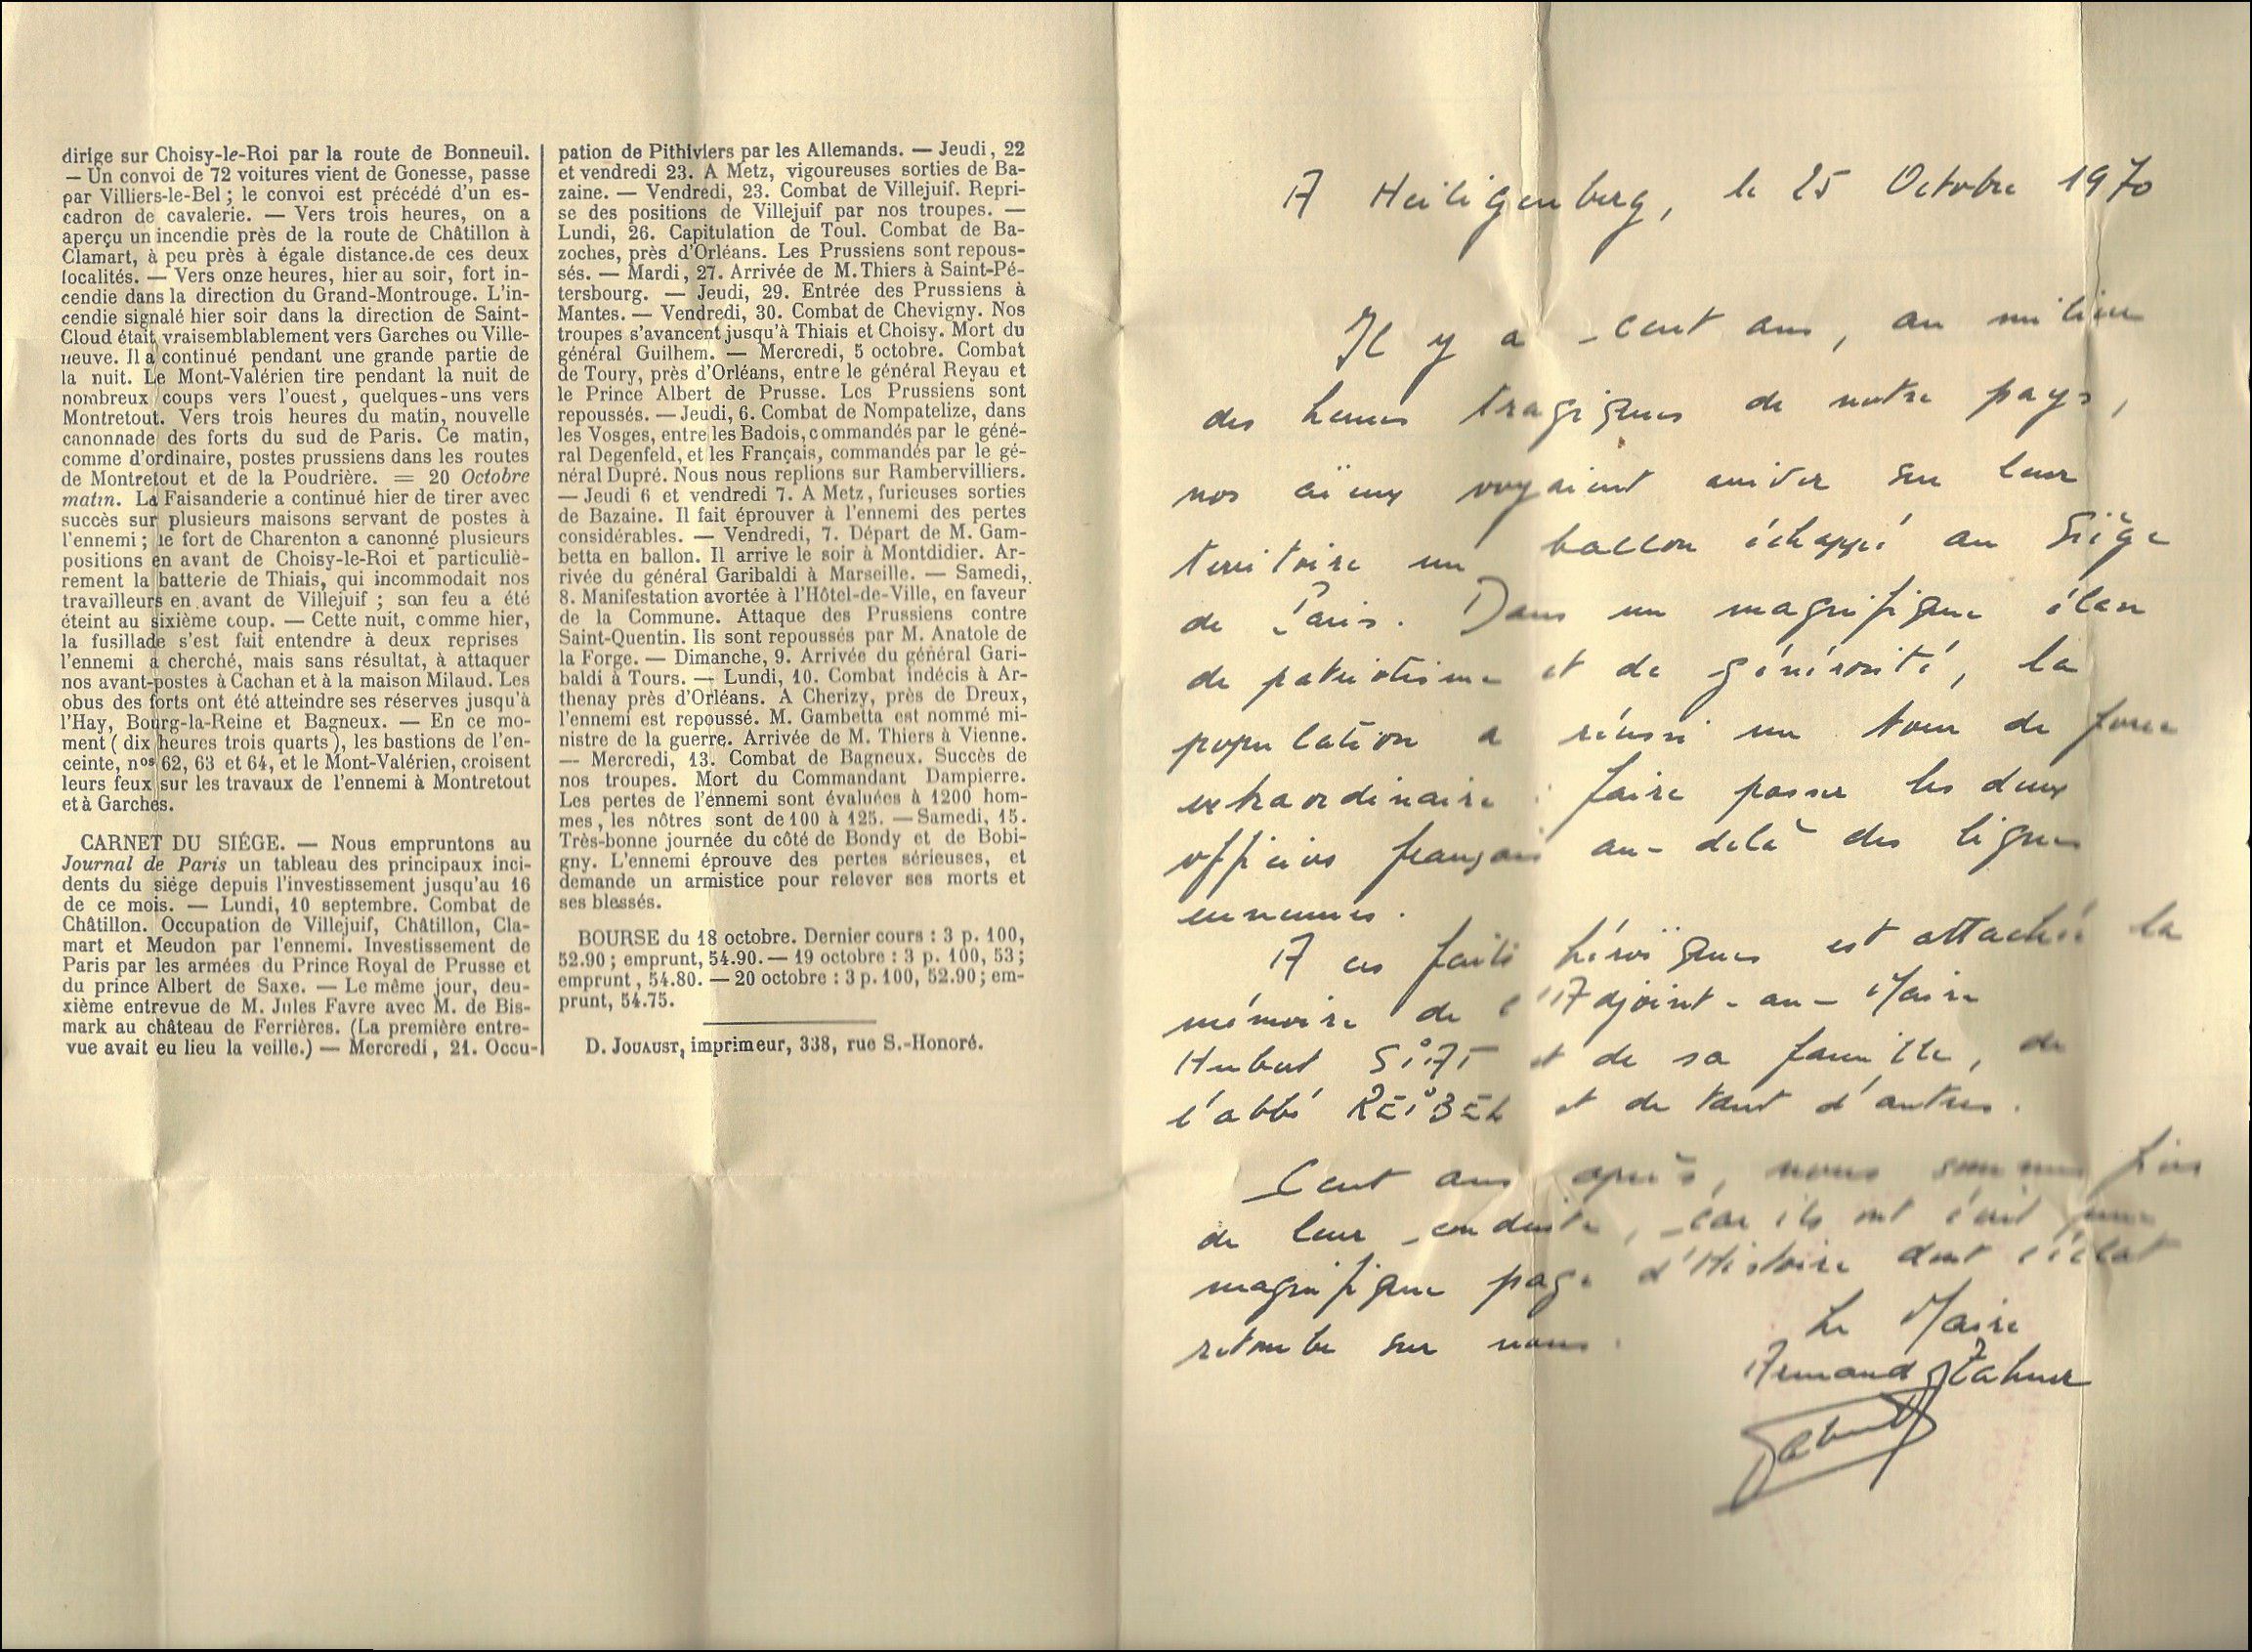 dirige sur Choisy-le-Roi par la route de Bonneuil.
— Un convoi de 72 voitures vient de Gonesse, passe
par Villiers-le-Bel ; le convoi est précédé d'un es-
cadron de cavalerie. — Vers trois heures, on a
aperçu un incendie près de la route de Châtillon à
Clamart, à peu près à égale distance.de ces deux
localités. — Vers onze heures, hier au soir, fort in-
cendie dans la direction du Grand-Montrouge. L'in-
cendie signalé hier soir dans la direction de Saint-
Cloud était vraisemblablement vers Garches ou Ville-
neuve. Il a continué pendant une grande partie de
la nuit. Le Mont-Valérien tire pendant la nuit de
nombreux coups vers l'ouest, quelques-uns vers
Montretout. Vers trois heures du matin, nouvelle
canonnade des forts du sud de Paris. Ce matin,
comme d'ordinaire, postes prussiens dans les routes
de Montretout et de la Poudrière. = 20 Octobre
matin. La Faisanderie a continué hier de tirer avec
succès sur plusieurs maisons servant de postes à
l'ennemi ; le fort de Charenton a canonné plusieurs
positions en avant de Choisy-le-Roi et particuliè-
rement la batterie de Thiais, qui incommodait nos
travailleurs en avant de Villejuif ; son feu a été
éteint au sixième coup. — Cette nuit, comme hier,
la fusillade s'est fait entendre à deux reprises
l'ennemi a cherché, mais sans résultat, à attaquer
nos avant-postes à Cachan et à la maison Milaud. Les
obus des forts ont été atteindre ses réserves jusqu'à
l'Hay, Bourg-la-Reine et Bagneux. — En ce mo-
ment ( dix heures trois quarts ), les bastions de l'en-
ceinte, nos 62, 63 et 64, et le Mont-Valérien, croisent
leurs feux sur les travaux de l'ennemi à Montretout
et à Garches.
CARNET DU SIÉGE. — Nous empruntons au
Journal de Paris un tableau des principaux inci-
dents du siége depuis l'investissement jusqu'au 16
de ce mois. — Lundi, 10 septembre. Combat de
Châtillon. Occupation de Villejuif, Châtillon, Cla-
mart et Meudon par l'ennemi. Investissement de
Paris par les armées du Prince Royal de Prusse et
du prince Albert de Saxe. — Le même jour, deu-
xième entrevue de M. Jules Favre avec M. de Bis-
mark au château de Ferrières. (La première entre-
vue avait eu lieu la veille.) — Mercredi, 21. Occu-
pation de Pithiviers par les Allemands. — Jeudi, 22
et vendredi 23. A Metz, vigoureuses sorties de Ba-
zaine. — Vendredi, 23. Combat de Villejuif. Repri-
se des positions de Villejuif par nos troupes. —
Lundi, 26. Capitulation de Toul. Combat de Ba-
zoches, près d'Orléans. Les Prussiens sont repous-
sés. — Mardi, 27. Arrivée de M. Thiers à Saint-Pé-
tersbourg. — Jeudi, 29. Entrée des Prussiens à
Mantes. — Vendredi, 30. Combat de Chevigny. Nos
troupes s'avancent jusqu'à Thiais et Choisy. Mort du
général Guilhem. — Mercredi, 5 octobre. Combat
de Toury, près d'Orléans, entre le général Reyau et
le Prince Albert de Prusse. Les Prussiens sont
repoussés. — Jeudi, 6. Combat de Nompatelize, dans
les Vosges, entre les Badois, commandés par le géné-
ral Degenfeld, et les Français, commandés par le gé-
néral Dupré. Nous nous replions sur Rambervilliers.
— Jeudi 6 et vendredi 7. A Metz, furieuses sorties
de Bazaine. Il fait éprouver à l'ennemi des pertes
considérables. — Vendredi, 7. Départ de M. Gam-
betta en ballon. Il arrive le soir à Montdidier. Ar-
rivée du général Garibaldi à Marseille. — Samedi,
8. Manifestation avortée à l'Hôtel-de-Ville, en faveur
de la Commune. Attaque des Prussiens contre
Saint-Quentin. Ils sont repoussés par M. Anatole de
la Forge. — Dimanche, 9. Arrivée du général Gari-
baldi à Tours. — Lundi, 10. Combat indécis à Ar-
thenay près d'Orléans. A Cherizy, près de Dreux,
l'ennemi est repoussé. M. Gambetta est nommé mi-
nistre de la guerre. Arrivée de M. Thiers à Vienne.
— Mercredi, 13. Combat de Bagneux. Succès de
nos troupes. Mort du Commandant Dampierre.
Les pertes de l'ennemi sont évaluées à 1200 hom-
mes, les nôtres sont de 100 à 125. — Samedi, 15.
Très-bonne journée du côté de Bondy et de Bobi-
gny. L'ennemi éprouve des pertes sérieuses, et
demande un armistice pour relever ses morts et
ses blessés.
BOURSE du 18 octobre. Dernier cours : 3 p. 100,
52.90 ; emprunt, 54.90. — 19 octobre : 3 p. 100, 53 ;
emprunt, 54.80. — 20 octobre : 3 p. 100, 52.90 ; em-
prunt, 54.75.
D. JOUAUST, imprimeur, 338, rue S.-Honoré.
A Heiligenberg, le 25 Octobre 1970
Il y a cent ans, au milieu
des heures tragiques de notre pays,
nos aïeux voyaient arriver sur leur
territoire un ballon échappé au Siège
de Paris. Dans un magnifique élan
de patriotisme et de générosité, la
population a réussi un tour de force
extraordinaire : faire passer les deux
officiers français au-delà des lignes
ennemies.
A ces faits héroïques est attachée la
mémoire de l'Adjoint-au-Maire
Hubert SIAT et de sa famille, de
l'abbé REIBEL et de tant d'autres.
Cent ans après, nous sommes fiers
de leur conduite, car ils ont écrit une
magnifique page d'Histoire dont l'éclat
retombe sur nous.
Le Maire
Armand